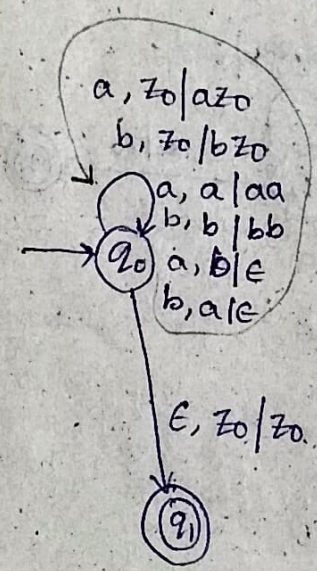 a, z0|az0
b, z0/bz0
a, a|aa
b, b|bb
q0
a, b|ϵ
b, a|ϵ
ϵ, z0/z0
q1